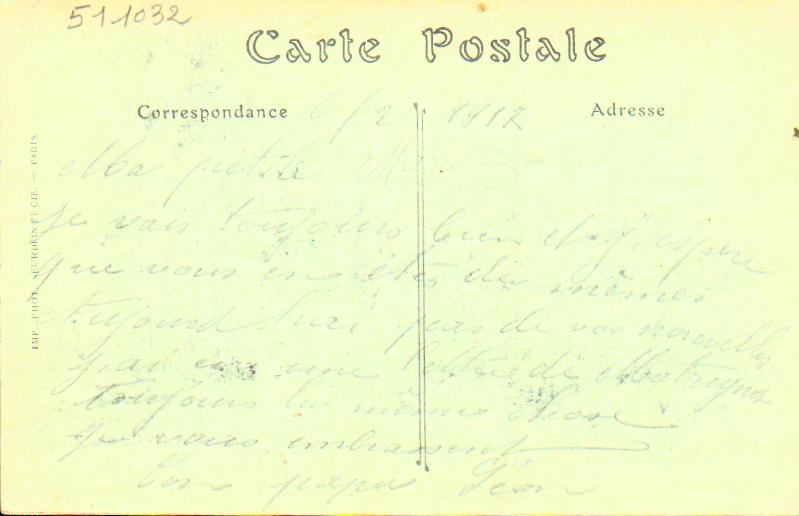 511032
Carte Postale
Correspondance
Adresse
6/2 1917
Ma petite
Je vais toujours bien et j'espere
que vous en êtes de mêmes
Aujourd'hui pas de vos nouvelles
j'ai eu une lettre de
toujours la même chose
Je vous embrassent
Ton papa Léon
IMP. PHOT. NEURDEIN ET CIE. — PARIS.